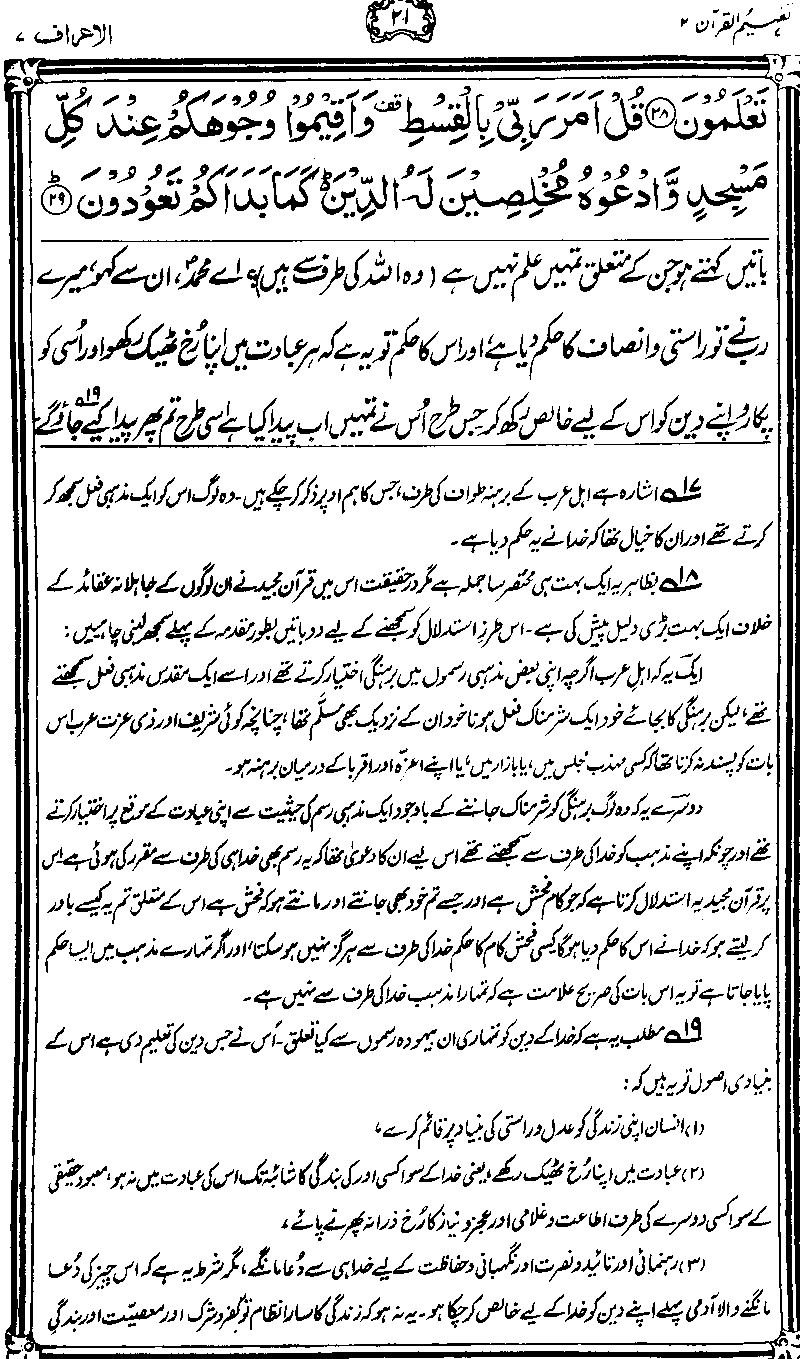 تفہیم القرآن ۲
۲۱
الاعراف ۷
تَعْلَمُوْنَ ﴿۲۸﴾ قُلْ اَمَرَ رَبِّیْ بِالْقِسْطِ ۟ وَ اَقِیْمُوْا وُجُوْهَكُمْ عِنْدَ كُلِّ
مَسْجِدٍ وَّ ادْعُوْهُ مُخْلِصِیْنَ لَهُ الدِّیْنَ ؕ كَمَا بَدَاَكُمْ تَعُوْدُوْنَ ﴿۲۹﴾ؕ
باتیں کہتے ہو جن کے متعلق تمہیں علم نہیں ہے (وہ اللہ کی طرف سے ہیں)؟ اے محمدؐ، ان سے کہو، میرے
رب نے تو راستی و انصاف کا حکم دیا ہے، اور اس کا حکم تو یہ ہے کہ ہر عبادت میں اپنا رُخ ٹھیک رکھو اور اُسی کو
پکارو اپنے دین کو اس کے لیے خالص رکھ کر، جس طرح اُس نے تمہیں اب پیدا کیا ہے اسی طرح تم پھر پیدا کیے جاؤ گے۔ ۱۹ھ
۱۷ھ اشارہ ہے اہل عرب کے برہنہ طواف کی طرف، جس کا ہم اوپر ذکر کر چکے ہیں۔ وہ لوگ اس کو ایک مذہبی فعل سمجھ کر
کرتے تھے اور ان کا خیال تھا کہ خدا نے یہ حکم دیا ہے۔
۱۸ھ بظاہر یہ ایک بہت ہی مختصر سا جملہ ہے مگر درحقیقت اس میں قرآن مجید نے ان لوگوں کے جاہلانہ عقائد کے
خلاف ایک بہت بڑی دلیل پیش کی ہے۔ اس طرزِ استدلال کو سمجھنے کے لیے دو باتیں بطور مقدمہ کے پہلے سمجھ لینی چاہییں:
ایک یہ کہ اہل عرب اگرچہ اپنی بعض مذہبی رسموں میں برہنگی اختیار کرتے تھے اور اسے ایک مقدس مذہبی فعل سمجھتے
تھے، لیکن برہنگی کا بجائے خود ایک شرمناک فعل ہونا خود ان کے نزدیک بھی مسلّم تھا، چنانچہ کوئی شریف اور ذی عزت عرب اس
بات کو پسند نہ کرتا تھا کہ کسی مہذب مجلس میں، یا بازار میں، یا اپنے اعزّہ اور اقربا کے درمیان برہنہ ہو۔
دوسرے یہ کہ وہ لوگ برہنگی کو شرمناک جاننے کے باوجود ایک مذہبی رسم کی حیثیت سے اپنی عبادت کے موقع پر اختیار کرتے
تھے اور چونکہ اپنے مذہب کو خدا کی طرف سے سمجھتے تھے اس لیے ان کا دعویٰ تھا کہ یہ رسم بھی خدا ہی کی طرف سے مقرر کی ہوئی ہے۔ اس
پر قرآن مجید یہ استدلال کرتا ہے کہ جو کام فحش ہے اور جسے تم خود بھی جانتے اور مانتے ہو کہ فحش ہے اس کے متعلق تم یہ کیسے باور
کر لیتے ہو کہ خدا نے اس کا حکم دیا ہوگا۔ کسی فحش کام کا حکم خدا کی طرف سے ہرگز نہیں ہو سکتا، اور اگر تمہارے مذہب میں ایسا حکم
پایا جاتا ہے تو یہ اس بات کی صریح علامت ہے کہ تمہارا مذہب خدا کی طرف سے نہیں ہے۔
۱۹ھ مطلب یہ ہے کہ خدا کے دین کو تمہاری ان بیہودہ رسموں سے کیا تعلق۔ اُس نے جس دین کی تعلیم دی ہے اس کے
بنیادی اصول تو یہ ہیں کہ:
(۱) انسان اپنی زندگی کو عدل و راستی کی بنیاد پر قائم کرے،
(۲) عبادت میں اپنا رُخ ٹھیک رکھے، یعنی خدا کے سوا کسی اور کی بندگی کا شائبہ تک اس کی عبادت میں نہ ہو، معبودِ حقیقی
کے سوا کسی دوسرے کی طرف اطاعت و غلامی اور عجز و نیاز کا رُخ ذرا نہ پھرنے پائے،
(۳) رہنمائی اور تائید و نصرت اور نگہبانی و حفاظت کے لیے خدا ہی سے دُعا مانگے، مگر شرط یہ ہے کہ اس چیز کی دُعا
مانگنے والا آدمی پہلے اپنے دین کو خدا کے لیے خالص کر چکا ہو۔ یہ نہ ہو کہ زندگی کا سارا نظام تو کفر و شرک اور معصیت اور بندگیِ